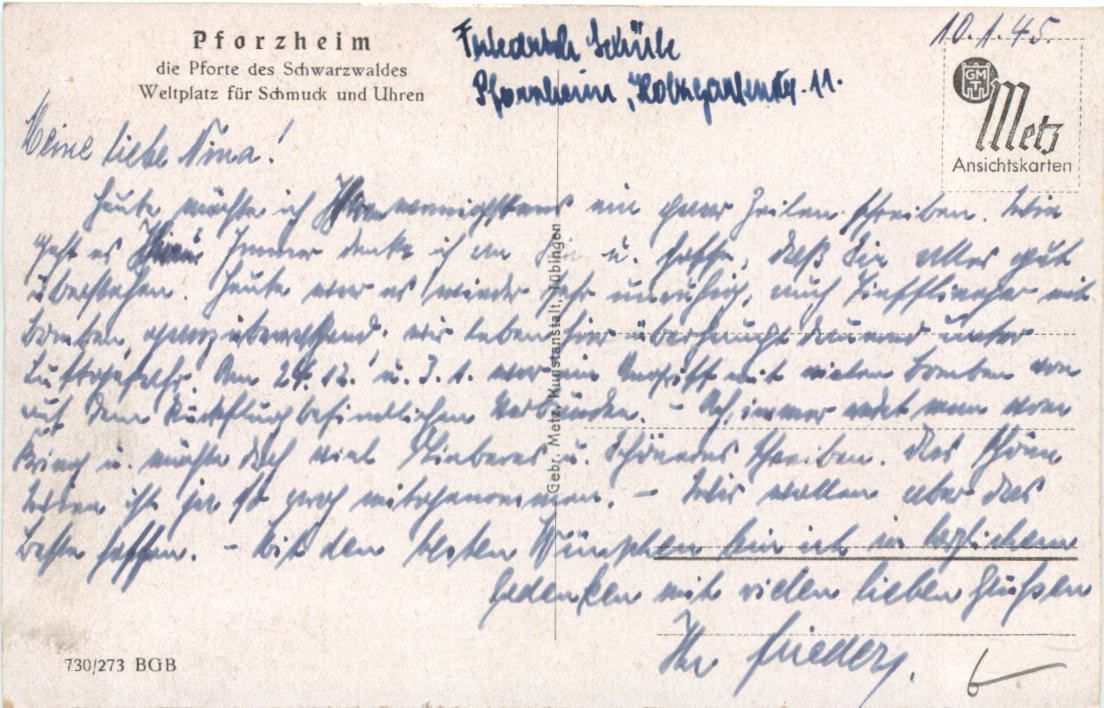 Pforzheim
die Pforte des Schwarzwaldes
Weltplatz für Schmuck und Uhren
Pforzheim, 11.
10.1.45.
GM
Metz
Ansichtskarten
Meine liebe Nina!
Heute möchte ich Ihnen wenigstens ein paar Zeilen schreiben. Wie
geht es Ihnen? Immer denke ich an Sie u. hoffe, daß Sie alles gut
überstehen. Heute war es wieder sehr unruhig, auch Tiefflieger mit
Bomben, ganz überraschend. wir leben hier überhaupt dauernd unter
Luftgefahr. Am 24.12. u. 3.1. war ein Angriff mit vielen Bomben von
auf dem Rückflug befindlichen Verbänden. – Ach, immer redet man vom
Krieg u. möchte doch viel Lieberes u. Schöneres schreiben. Das
ist ja so mitgenommen. – Wir wollen aber das
Beste hoffen. – Mit den besten Wünschen bin ich in herzlichem
Gedenken mit vielen lieben Grüßen
Ihr
Gebr. Metz, Kunstanstalt, Tübingen
730/273 BGB